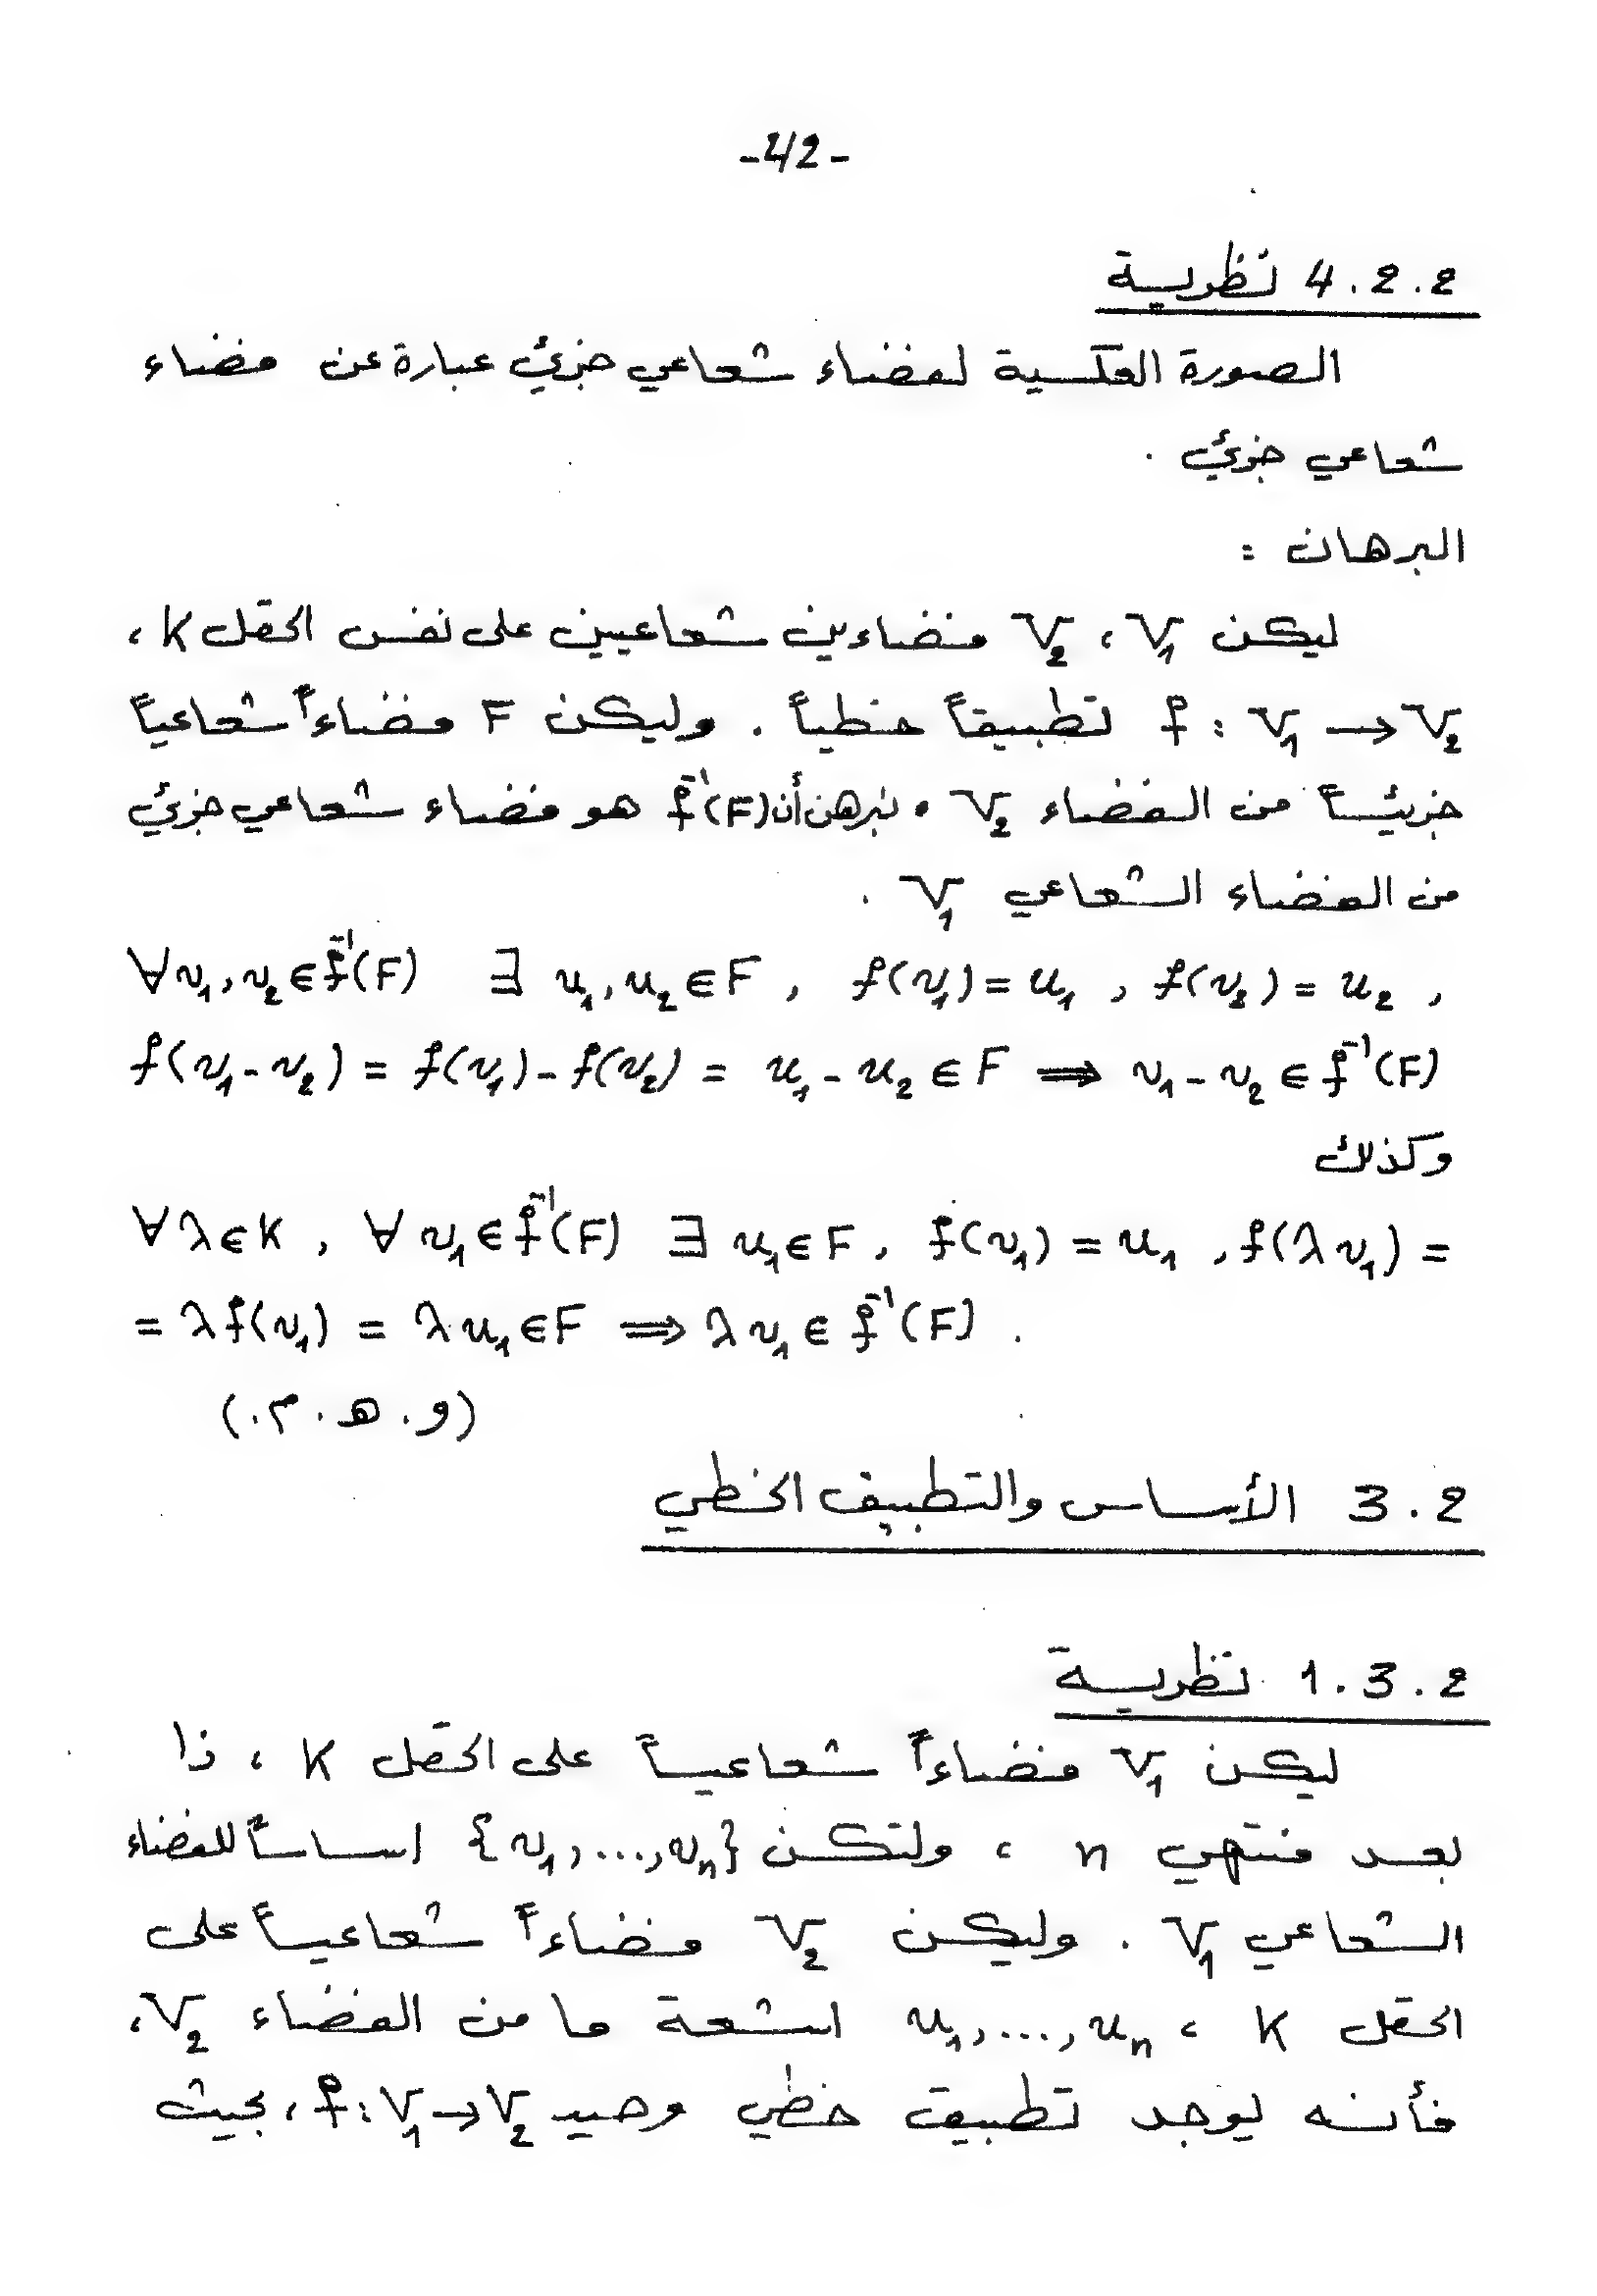 -42-
4.2.2 نظرية
الصورة العكسية لفضاء شعاعي جزئي عبارة عن فضاء
شعاعي جزئي .
البرهان :
ليكن V₁ ، V₂ فضاءين شعاعيين على نفس الحقل K ،
f : V₁ → V₂ تطبيقاً خطياً . وليكن F فضاءاً شعاعياً
جزئيـاً من الفضاء V₂ . لنبرهن أن f⁻¹(F) هو فضاء شعاعي جزئي
من الفضاء الشعاعي V₁ .
∀v₁,v₂∈f⁻¹(F) ∃ u₁,u₂∈F , f(v₁)=u₁ , f(v₂)=u₂ ,
f(v₁-v₂) = f(v₁)-f(v₂) = u₁-u₂∈F ⟹ v₁-v₂∈f⁻¹(F)
وكذلك
∀λ∈K , ∀v₁∈f⁻¹(F) ∃ u₁∈F , f(v₁)=u₁ , f(λv₁) =
= λf(v₁) = λu₁∈F ⟹ λv₁∈f⁻¹(F) .
(و . هـ . م .)
3.2 الأساس والتطبيق الخطي
1.3.2 نظرية
ليكن V₁ فضاءاً شعاعياً على الحقل K ، ذا
بعد منتهي n ، ولتكن {v₁,...,vₙ} اساساً للفضاء
الشعاعي V₁ . وليكن V₂ فضاءاً شعاعياً على
الحقل K ، u₁,...,uₙ اشعة ما من الفضاء V₂ ،
فأنه يوجد تطبيق خطي وحيد f:V₁→V₂ ، بحيث